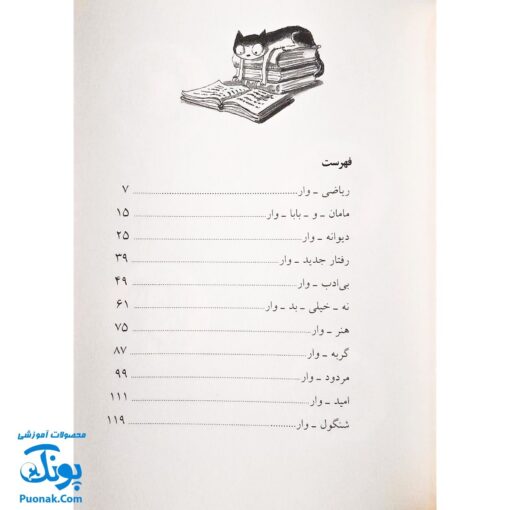 فهرست
ریاضی ـ وار ........ ۷
مامان ـ و ـ بابا ـ وار ........ ۱۵
دیوانه ـ وار ........ ۲۵
رفتار جدید ـ وار ........ ۳۹
بی‌ادب ـ وار ........ ۴۹
نه ـ خیلی ـ بد ـ وار ........ ۶۱
هنر ـ وار ........ ۷۵
گربه ـ وار ........ ۸۷
مردود ـ وار ........ ۹۹
امید ـ وار ........ ۱۱۱
شنگول ـ وار ........ ۱۱۹
محصولات آموزشی
پونک
Puonak.Com